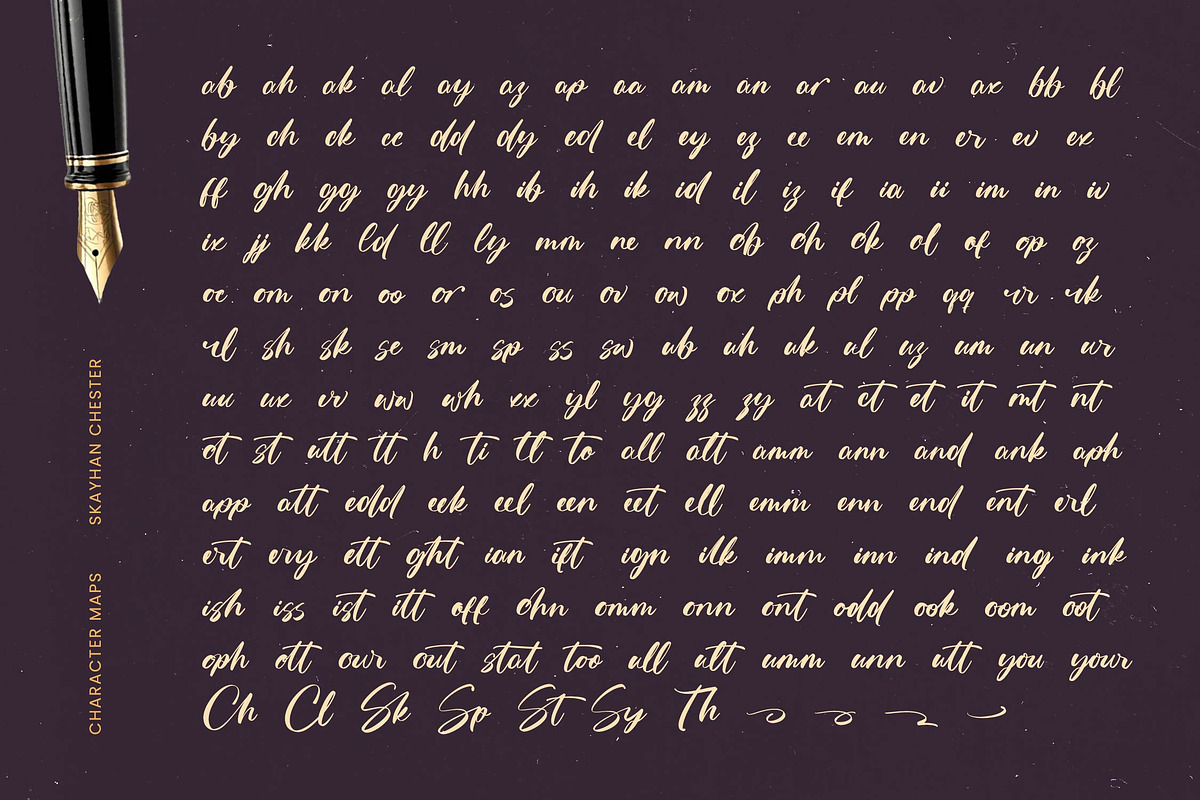 ab ah ak al ay az ap aa am an ar au av ax bb bl
by ch ck cc dd dy ed el ey ez ee em en er ev ex
ff gh gg gy hh ib ih ik id il iz if ia ii im in iv
ix jj kk ld ll ly mm ne nn ob oh ok ol of op oz
oe om on oo or os ou ov ow ox ph pl pp qq rr rk
rl sh sk se sm sp ss sw ub uh uk ul uz um un ur
uu ux vr ww wh xx yl yg zz zy at ct et it mt nt
ot st utt tt h ti tl to all att amm ann and ank aph
app att edd eek eel een eet ell emm enn end ent erl
ert ery ett ght ian ift ign ilk imm inn ind ing ink
ish iss ist itt off ohn omm onn ont odd ook oom oot
oph ott our out stat too ull ult umm unn utt you your
Ch Cl Sk Sp St Sy Th
SKAYHAN CHESTER
CHARACTER MAPS